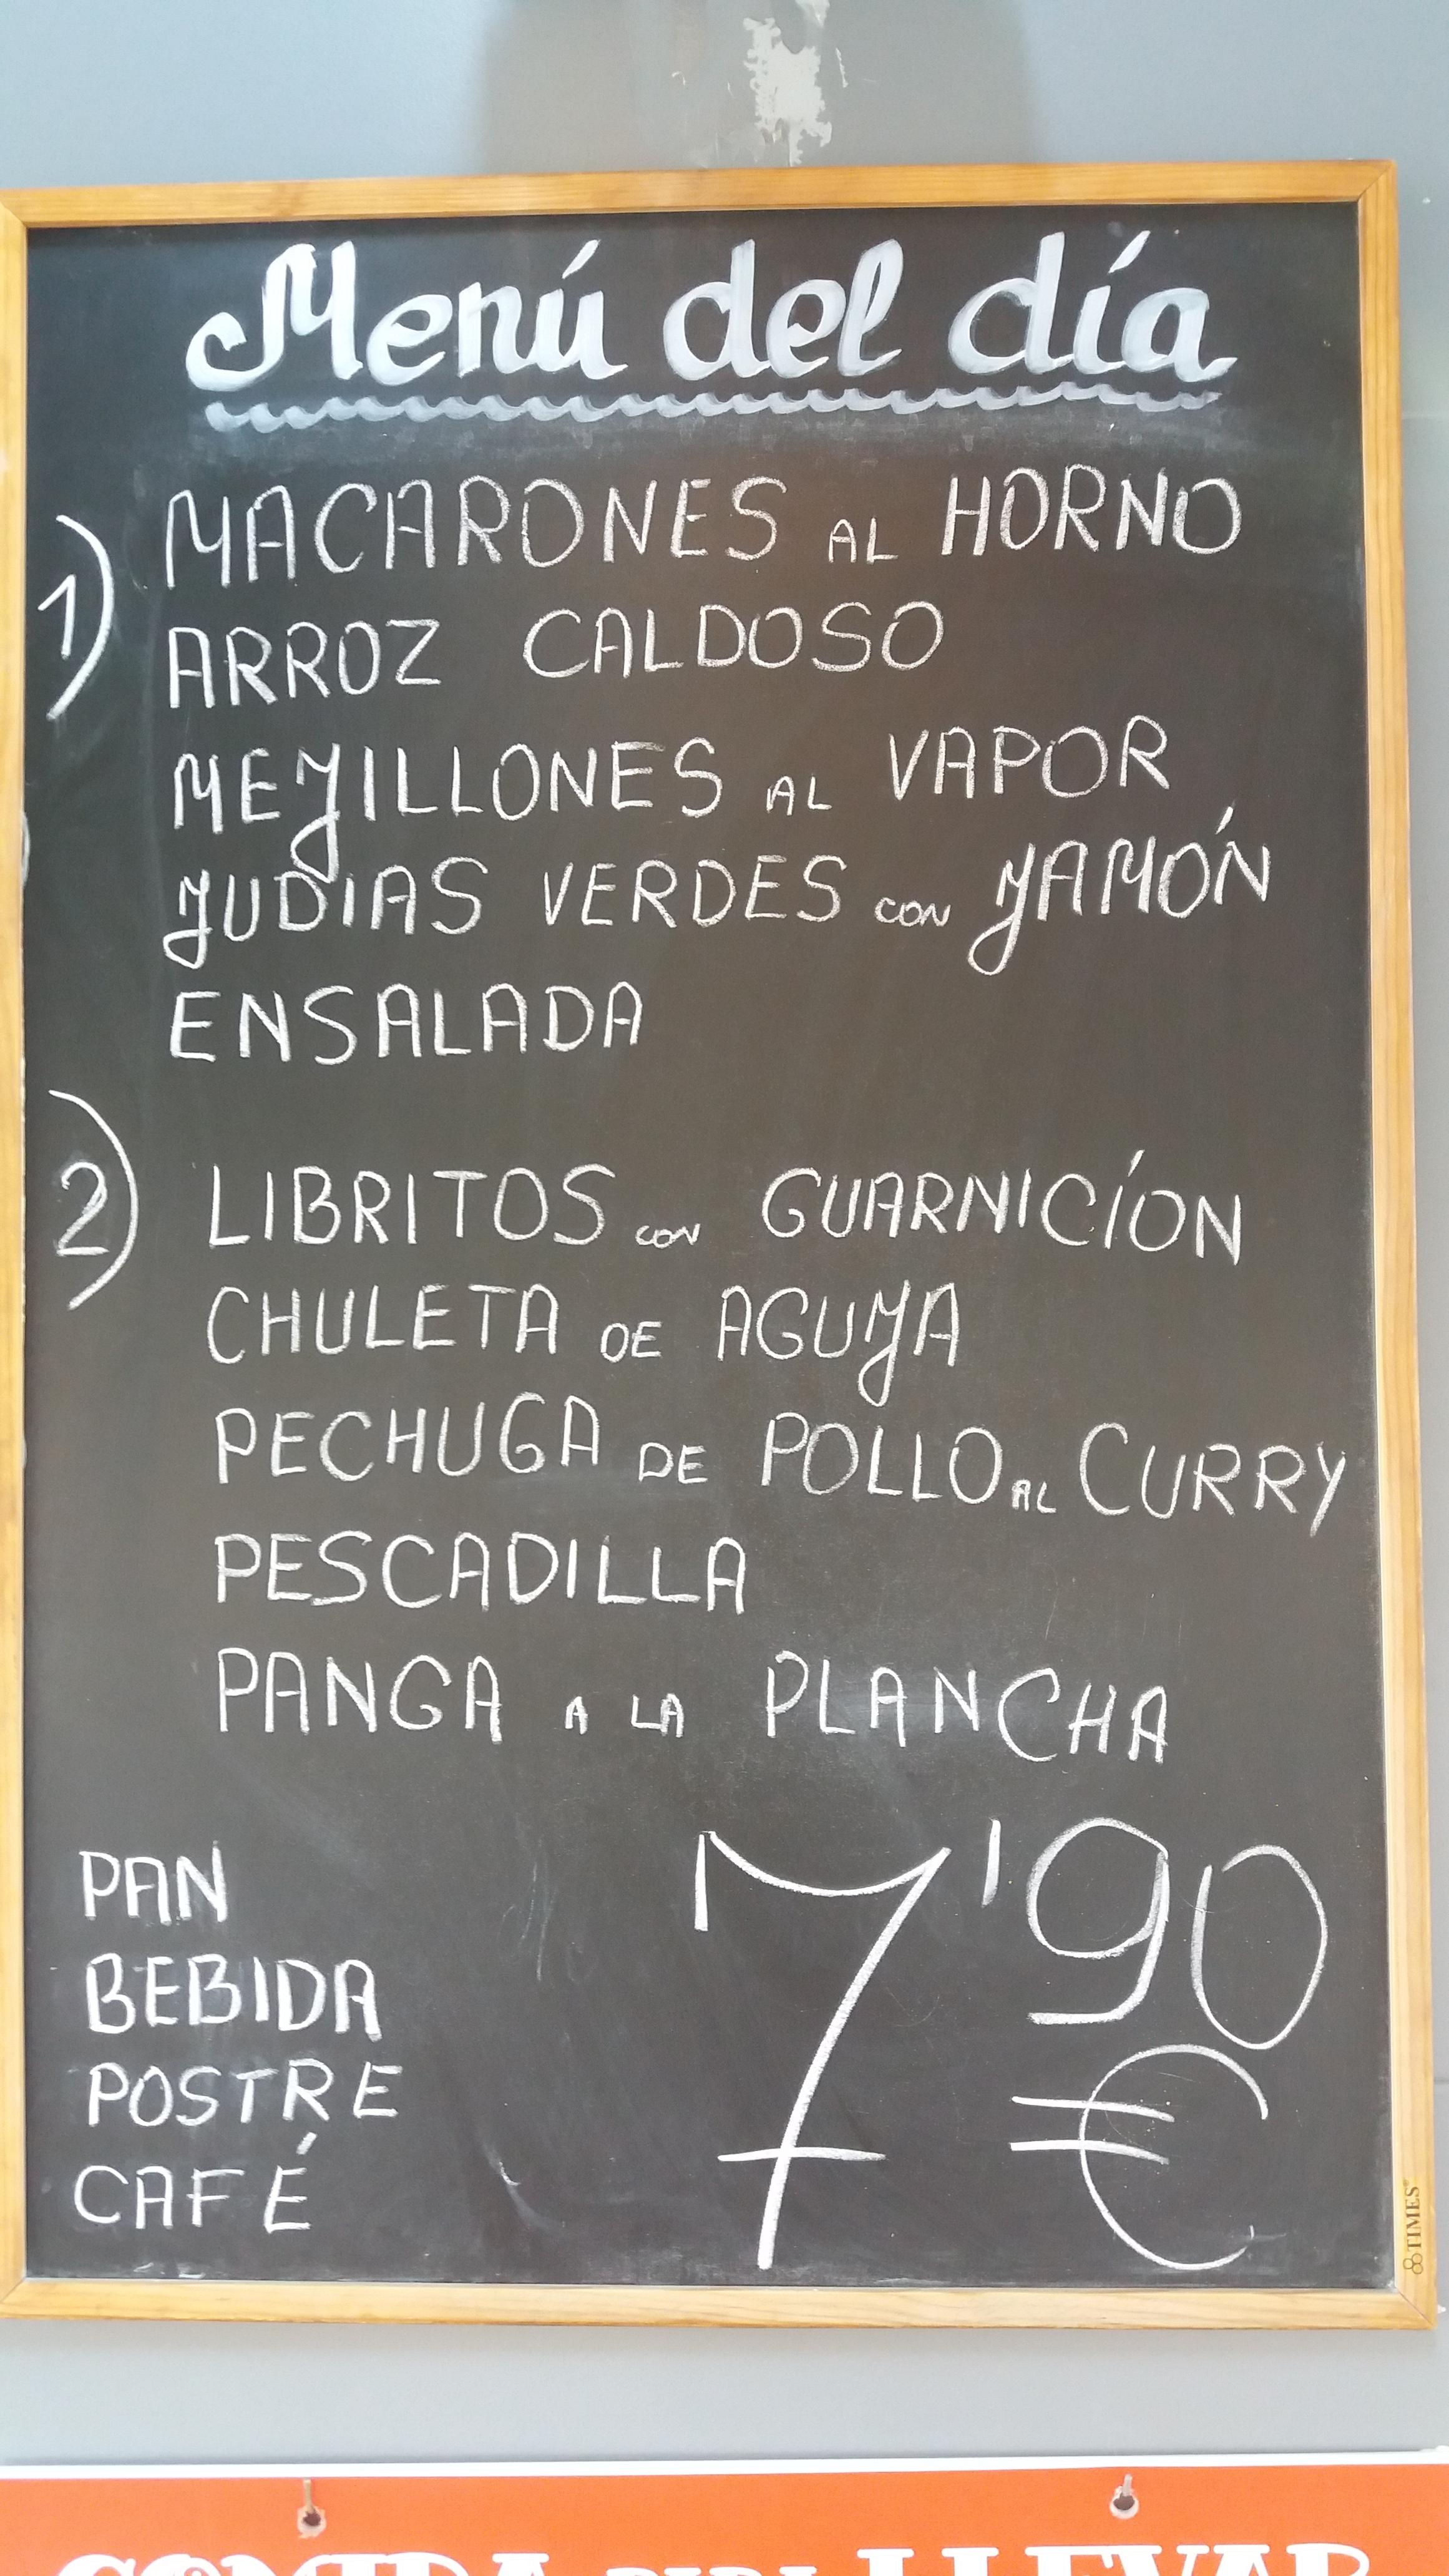 Menú del día
1) MACARONES AL HORNO
ARROZ CALDOSO
MEJILLONES AL VAPOR
JUDIAS VERDES CON JAMÓN
ENSALADA
2) LIBRITOS CON GUARNICÍON
CHULETA DE AGUJA
PECHUGA DE POLLO AL CURRY
PESCADILLA
PANGA A LA PLANCHA
PAN
BEBIDA
POSTRE
CAFÉ
7'90
€
TIMES
LLEVAR